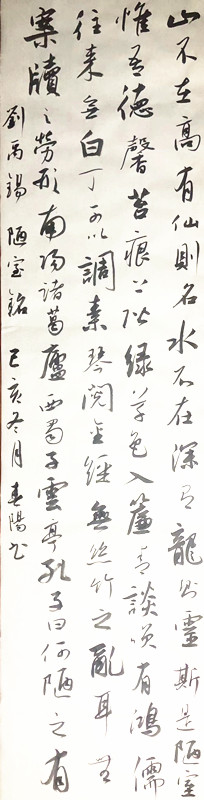 山不在高有仙則名水不在深有龍則靈斯是陋室
惟吾德馨苔痕上階綠草色入簾青談笑有鴻儒
往來無白丁可以調素琴閱金經無絲竹之亂耳無
案牘之勞形南陽諸葛廬西蜀子雲亭孔子曰何陋之有
劉禹錫陋室銘己亥冬月春陽書